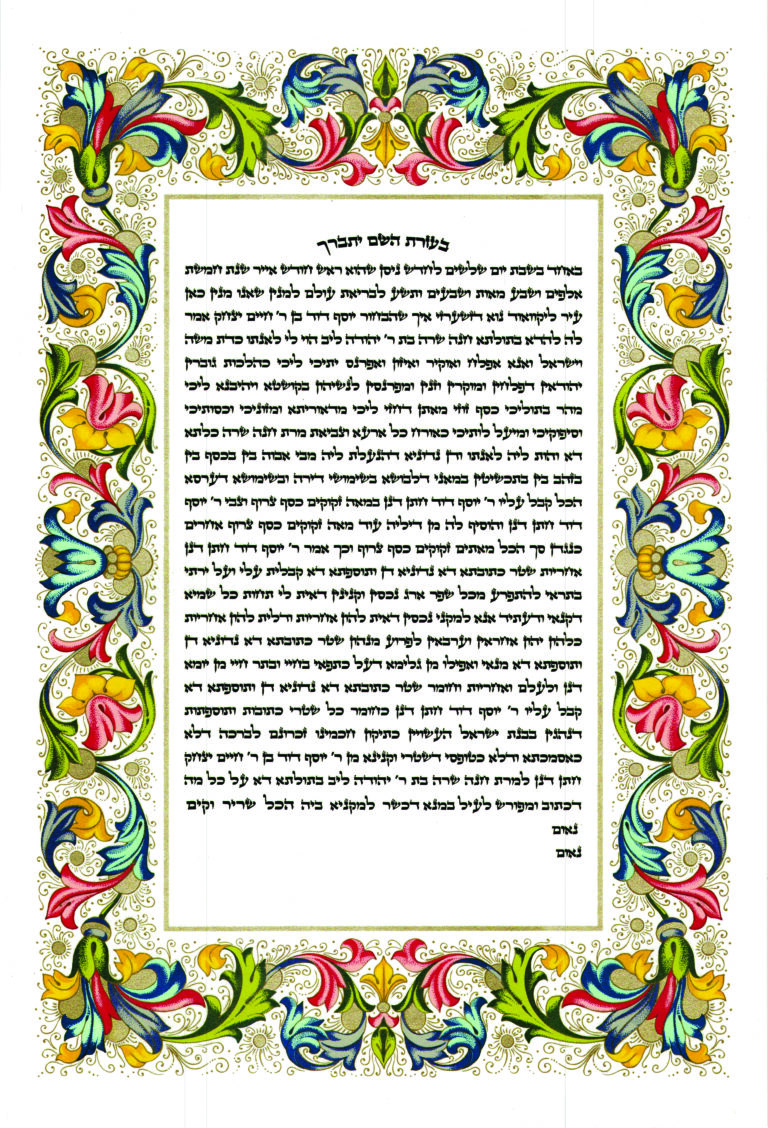 בעזרת השם יתברך
באחד בשבת יום שלשים לחודש ניסן שהוא ראש חודש אייר שנת חמשת
אלפים ושבע מאות ושבעים ותשע לבריאת עולם למנין שאנו מנין כאן
עיר ליקוואוד נוא דזשערזי איך שהבחור יוסף דוד בן ר׳ חיים יצחק אמר
לה להדא בתולתא חנה שרה בת ר׳ יהודה ליב הוי לי לאנתו כדת משה
וישראל ואנא אפלח ואוקיר ואיזון ואפרנס יתיכי ליכי כהלכות גוברין
יהודאין דפלחין ומוקרין וזנין ומפרנסין לנשיהון בקושטא ויהיבנא ליכי
מהר בתוליכי כסף זוזי מאתן דחזי ליכי מדאוריתא ומזוניכי וכסותיכי
וסיפוקיכי ומיעל לותיכי כאורח כל ארעא וצביאת מרת חנה שרה כלתא
דא והות ליה לאנתו ודן נדוניא דהנעלת ליה מבי אבוה בין בכסף בין
בזהב בין בתכשיטין במאני דלבושא בשימושי דירה ובשימושא דערסא
הכל קבל עליו ר׳ יוסף דוד חתן דנן במאה זקוקים כסף צרוף וצבי ר׳ יוסף
דוד חתן דנן והוסיף לה מן דיליה עוד מאה זקוקים כסף צרוף אחרים
כנגדן סך הכל מאתים זקוקים כסף צרוף וכך אמר ר׳ יוסף דוד חתן דנן
אחריות שטר כתובתא דא נדוניא דן ותוספתא דא קבלית עלי ועל ירתי
בתראי להתפרע מכל שפר ארג נכסין וקנינין דאית לי תחות כל שמיא
דקנאי ודעתיד אנא למקני נכסין דאית להון אחריות ודלית להון אחריות
כלהון יהון אחראין וערבאין לפרוע מנהון שטר כתובתא דא נדוניא דן
ותוספתא דא מנאי ואפילו מן גלימא דעל כתפאי בחיי ובתר חיי מן יומא
דנן ולעלם ואחריות וחומר שטר כתובתא דא נדוניא דן ותוספתא דא
קבל עליו ר׳ יוסף דוד חתן דנן כחומר כל שטרי כתובות ותוספתות
דנהגין בבנת ישראל העשויין כתיקון חכמינו זכרונם לברכה דלא
כאסמכתא ודלא כטופסי דשטרי וקנינא מן ר׳ יוסף דוד בן ר׳ חיים יצחק
חתן דנן למרת חנה שרה בת ר׳ יהודה ליב בתולתא דא על כל מה
דכתוב ומפורש לעיל במנא דכשר למקניא ביה הכל שריר וקים
נאום
נאום